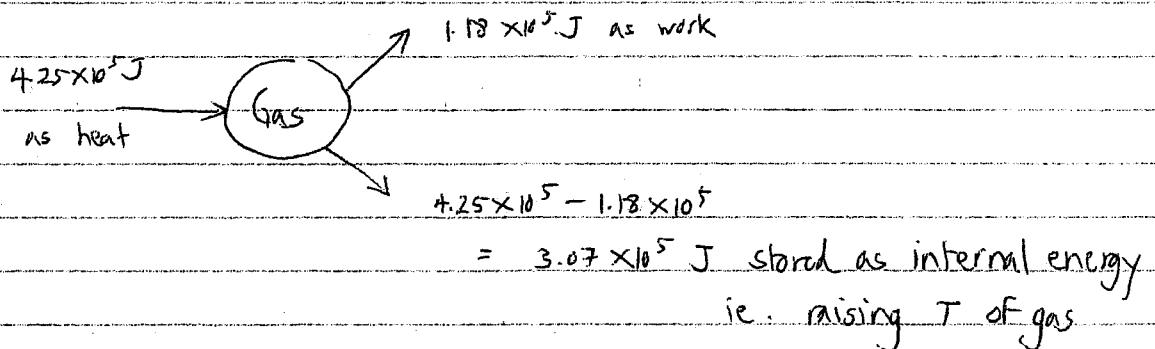 1.18 ×10⁵ J as work
4.25×10⁵ J
as heat
Gas
4.25×10⁵ – 1.18×10⁵
= 3.07 ×10⁵ J stored as internal energy
ie. raising T of gas